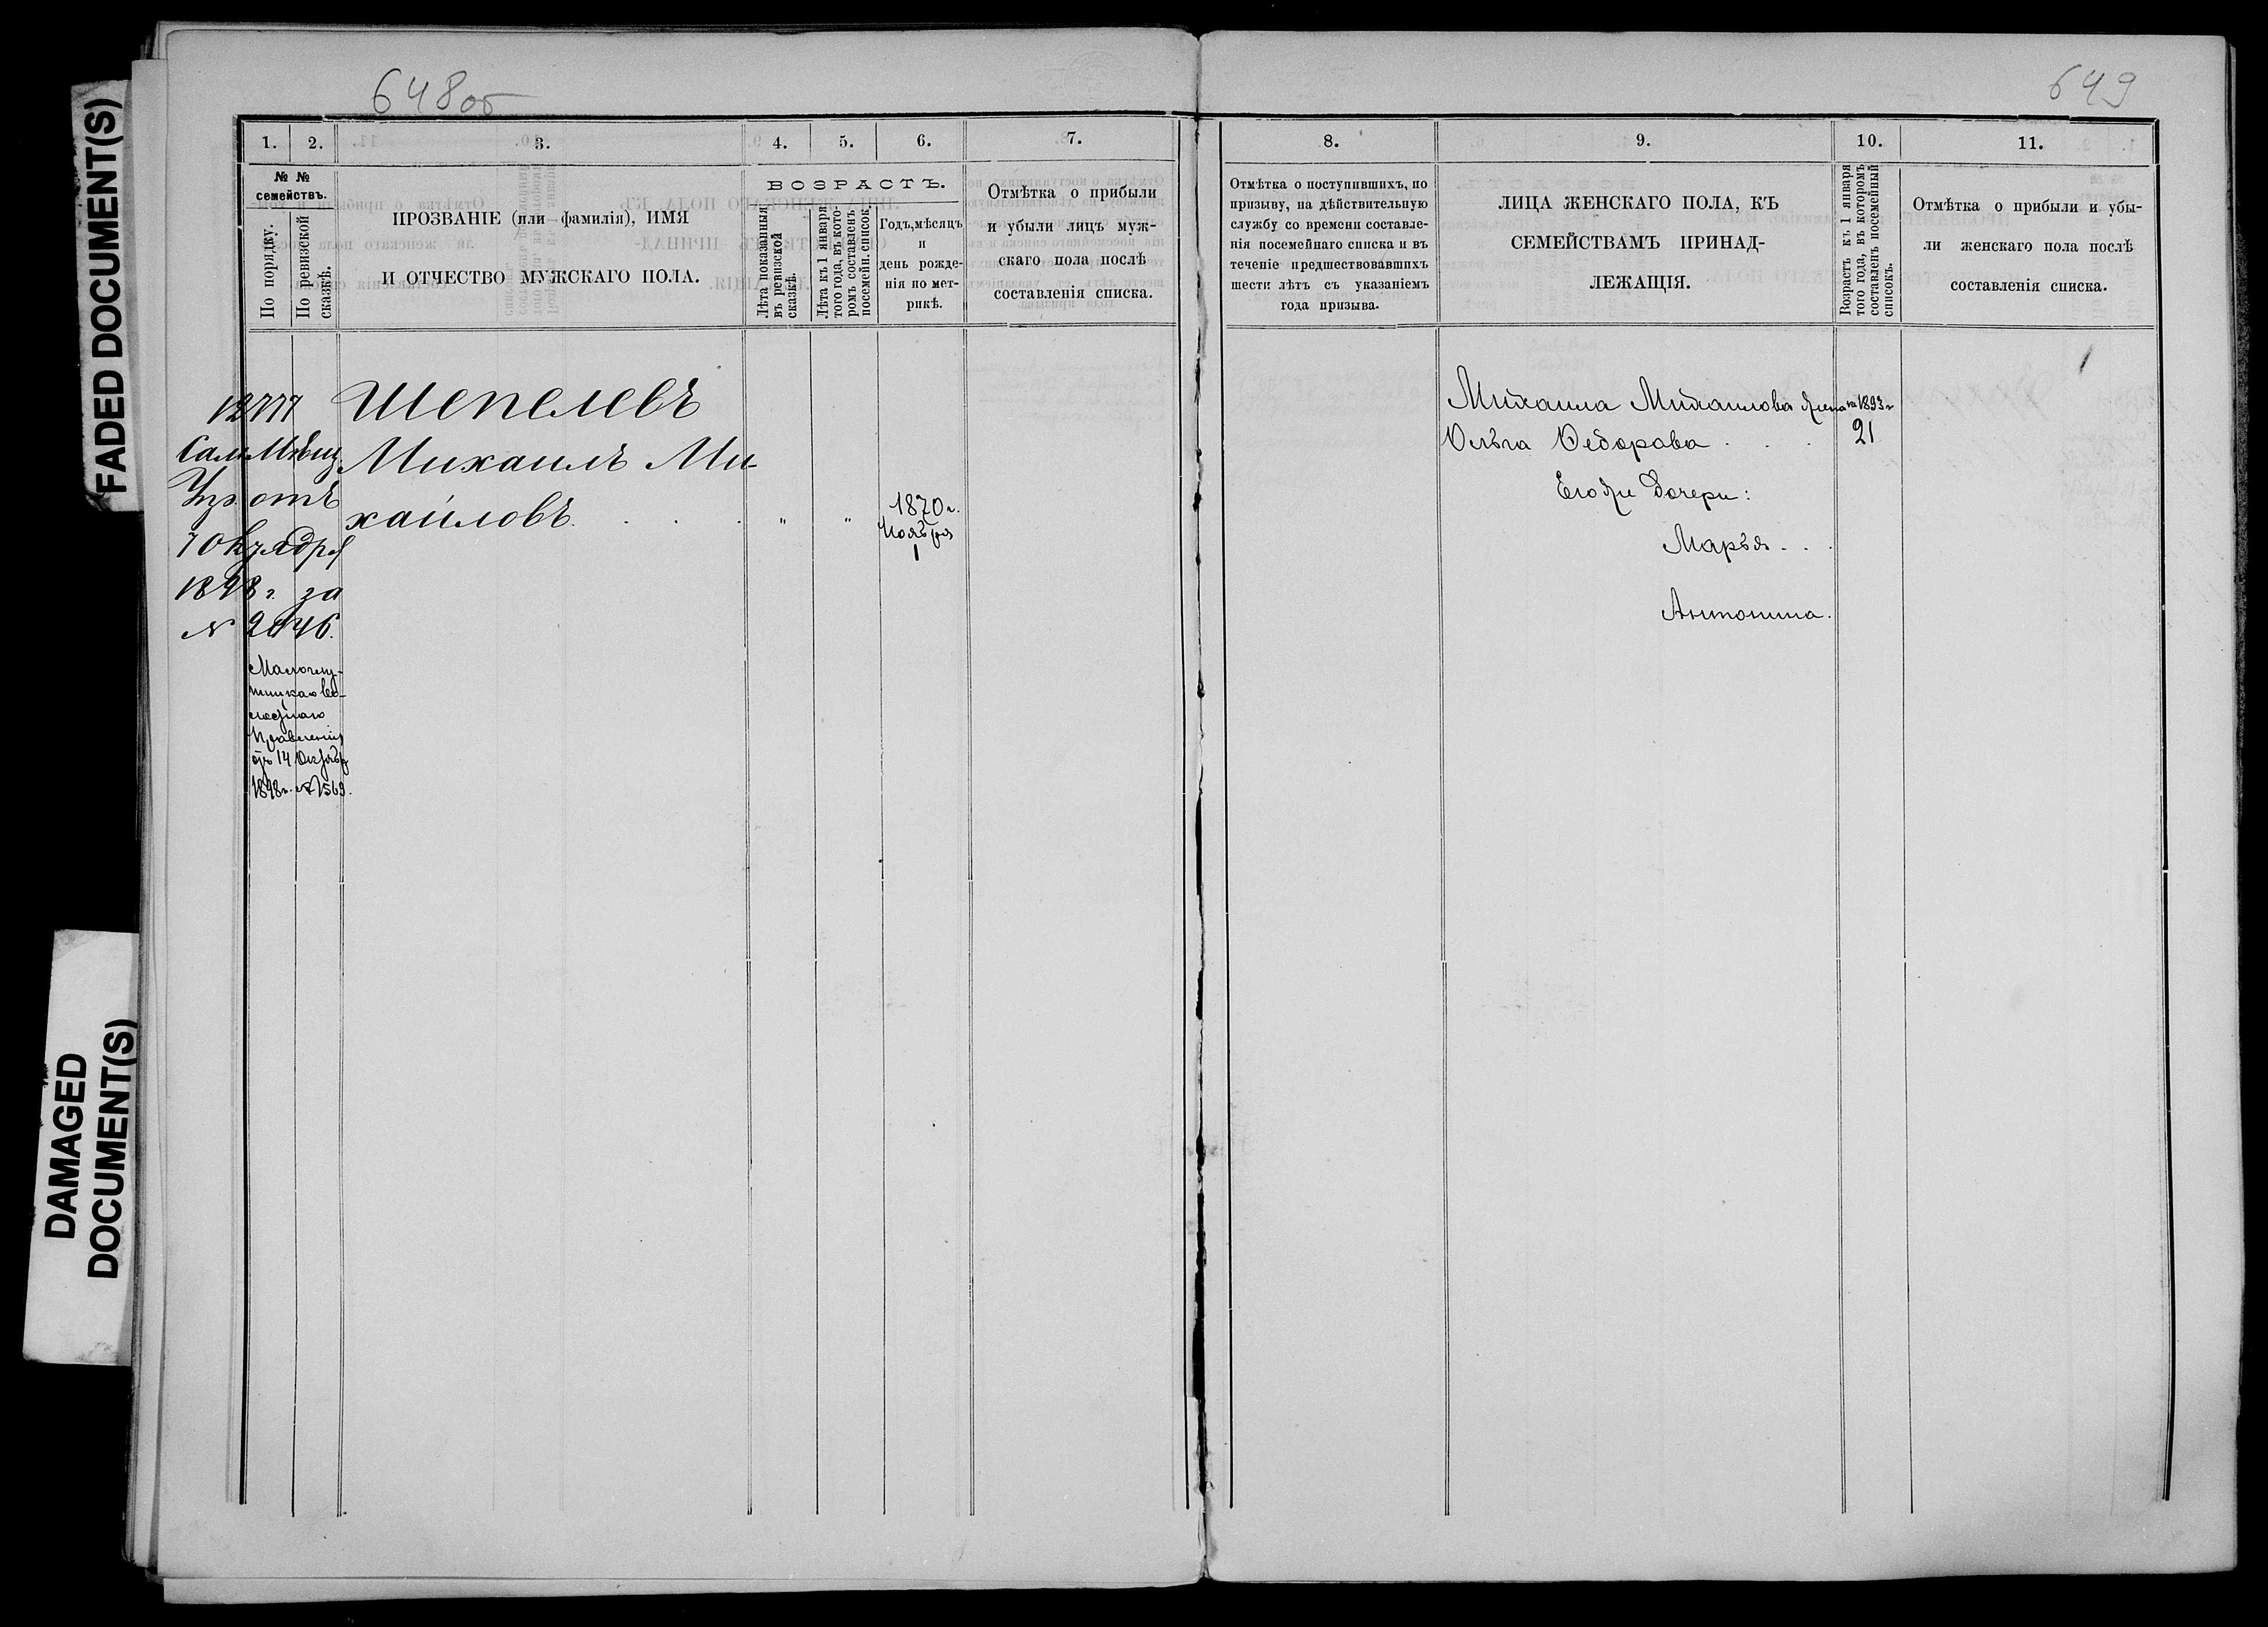 FADED DOCUMENT(S)
DAMAGED
DOCUMENT(S)
648 об
1.
2.
3.
4.
5.
6.
7.
№ №
семействъ.
По порядку.
По ревизской
сказкѣ.
ПРОЗВАНІЕ (или фамилія), ИМЯ
И ОТЧЕСТВО МУЖСКАГО ПОЛА.
ВОЗРАСТЪ.
Лѣта показанныя
въ ревизской
сказкѣ.
Лѣта къ 1 января
того года, въ кото-
ромъ составленъ
посемейн. список.
Годъ, мѣсяцъ
и
день рожде-
нія по мет-
рикѣ.
Отмѣтка о прибыли
и убыли лицъ муж-
скаго пола послѣ
составленія списка.
12777
Сам. Мѣщ.
Упр. отъ
7 Октября
1898 г. за
№ 2046.
правленія
отъ 14 Октября
1898 г. № 1569.
Шепелевъ
Михаилъ Ми-
хайловъ . . .
"
"
1870 г.
Ноября
1
649
8.
9.
10.
11.
Отмѣтка о поступившихъ, по
призыву, на дѣйствительную
службу со времени составле-
нія посемейнаго списка и въ
теченіе предшествовавшихъ
шести лѣтъ съ указаніемъ
года призыва.
ЛИЦА ЖЕНСКАГО ПОЛА, КЪ
СЕМЕЙСТВАМЪ ПРИНАД-
ЛЕЖАЩІЯ.
Возрастъ къ 1 января
того года, въ которомъ
составленъ посемейный
списокъ.
Отмѣтка о прибыли и убы-
ли женскаго пола послѣ
составленія списка.
Михаила Михаилова жена
Ольга Ѳедорова . . .
Его же дочери:
Марья . . .
Антонина.
на 1893 г
21